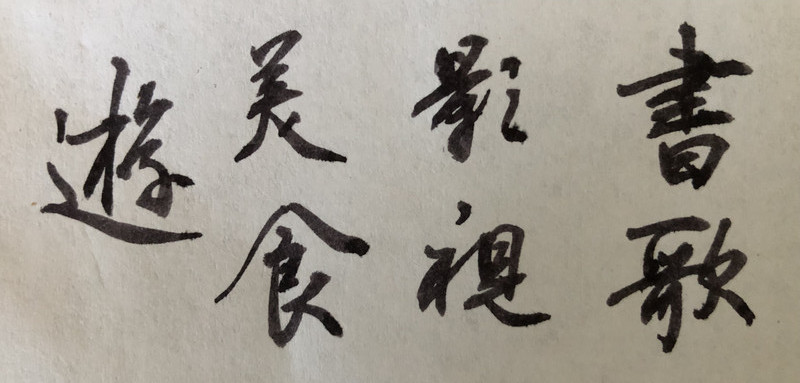 書歌
影視
美食
遊